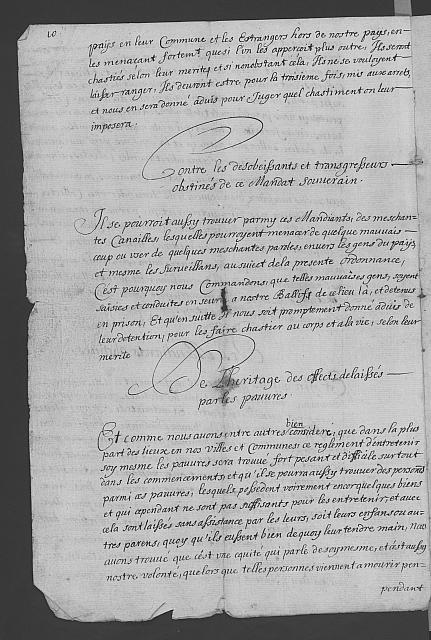 10
païs en leur Commune et les Estrangers hors de nostre païs, en-
les menaçant fortemt que si l'on les apperçoit plus outre, Ils seront
chastiés selon leur merite, et si nonobstant cela, Ils ne se vouloyent
laisser ranger, Ils devront estre pour la troisieme fois, mis aux arrets,
et nous en sera donné aduis pour Juger quel chastiment on leur
imposera.
Contre les desobeissants et transgresseurs
obstinés de ce Mandat Souverain.
Il se pourroit aussy trouver parmy ces Mandiants, des meschan-
tes Canailles, lesquelles pourroyent menacer de quelque mauvais
coup ou vser de quelques meschantes paroles, envers les gens du païs,
et mesme les Surueillans, au suiect de la presente Ordonnance,
C'est pourquoy nous Commandons, que telles mauvaises gens, soyent
saisies et conduites en seurté a nostre Ballif de ce lieu là, et detenus
en prison, Et qu'en suitte il nous soit promptement donné aduis de
leur detention, pour les faire chastier au corps et a la vie, selon leur
merite
De l'heritage des effects delaissés
par les pauures
Et comme nous avons entre autres bien consideré, que dans la plus
part des lieux en nos Villes et Communes, ce reglement d'entretenir
soy mesme les pauures sera trouvé fort pesant et difficile, sur tout
dans les commencements, et qu'il se pourra aussy trouver des personnes
parmi ces pauures, lesquels possedent voirement encor quelques biens
et qui cependant ne sont pas suffisants pour les entretenir, et auec
cela sont laissés sans assistance par les leurs, soit leurs enfans ou au-
tres parens, quoy qu'ils eussent bien dequoy leur tendre main, nous
auons trouvé que c'est vne equité qui parle de soy mesme, et c'est aussy
nostre volonté, que lors que telles personnes viennent a mourir pen-
pendant